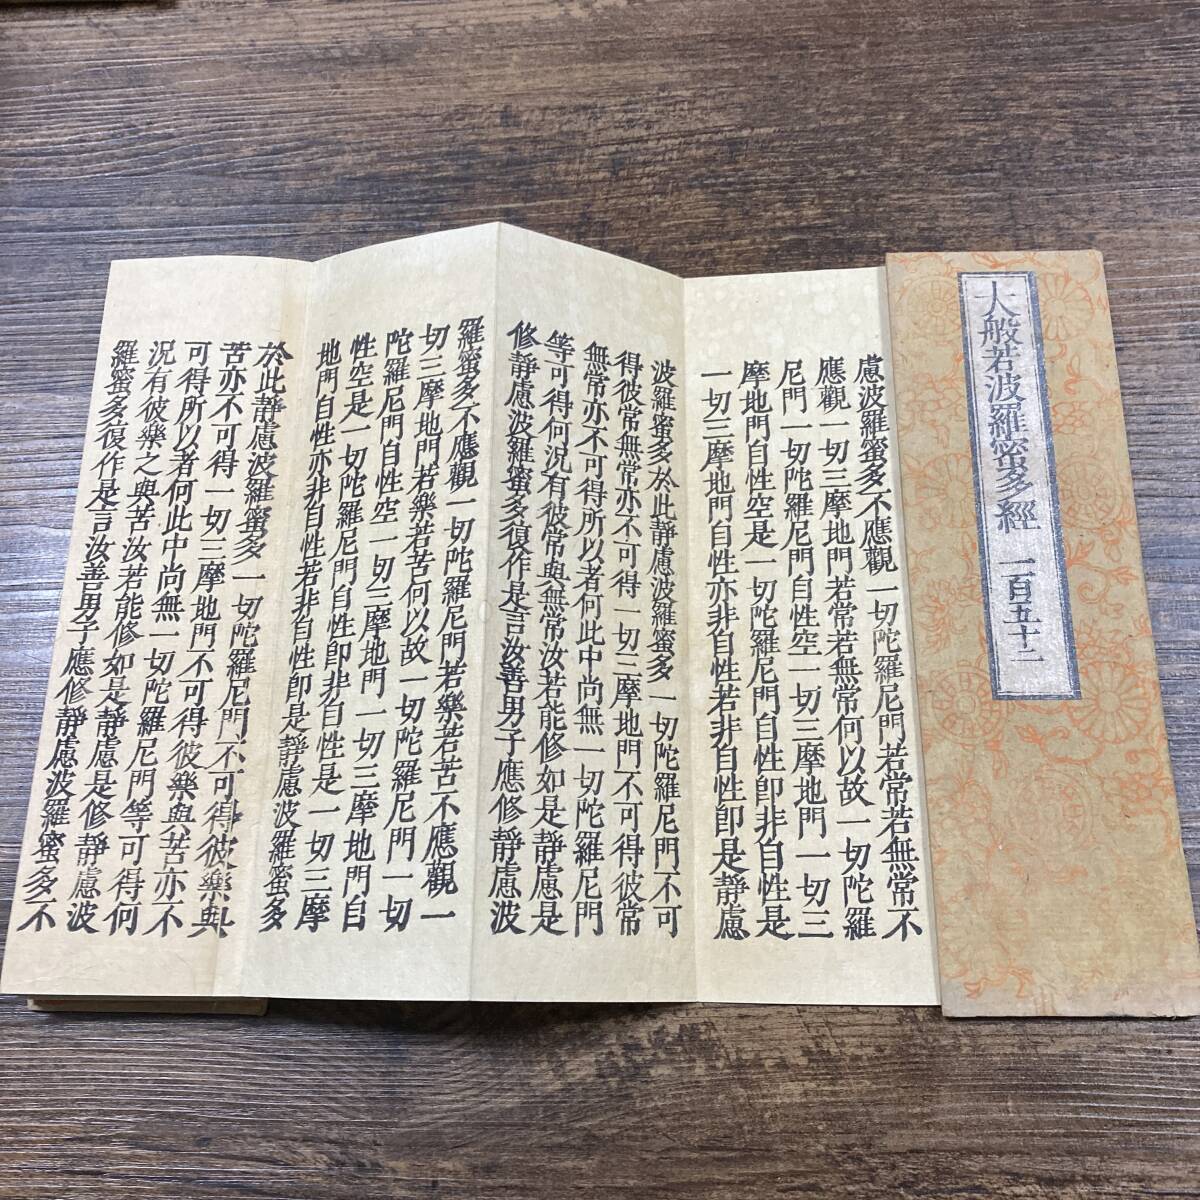 大般若波羅蜜多經 一百五十二
慮波羅蜜多不應觀一切陀羅尼門若常若無常不
應觀一切三摩地門若常若無常何以故一切陀羅
尼門一切陀羅尼門自性空一切三摩地門一切三
摩地門自性空是一切陀羅尼門自性即非自性是
一切三摩地門自性亦非自性若非自性即是靜慮
波羅蜜多於此靜慮波羅蜜多一切陀羅尼門不可
得彼常無常亦不可得一切三摩地門不可得彼常
無常亦不可得所以者何此中尚無一切陀羅尼門
等可得何況有彼常與無常汝若能修如是靜慮是
修靜慮波羅蜜多復作是言汝善男子應修靜慮波
羅蜜多不應觀一切陀羅尼門若樂若苦不應觀一
切三摩地門若樂若苦何以故一切陀羅尼門一切
陀羅尼門自性空一切三摩地門一切三摩地門自
性空是一切陀羅尼門自性即非自性是一切三摩
地門自性亦非自性若非自性即是靜慮波羅蜜多
於此靜慮波羅蜜多一切陀羅尼門不可得彼樂與
苦亦不可得一切三摩地門不可得彼樂與苦亦不
可得所以者何此中尚無一切陀羅尼門等可得何
況有彼樂之與苦汝若能修如是靜慮是修靜慮波
羅蜜多復作是言汝善男子應修靜慮波羅蜜多不